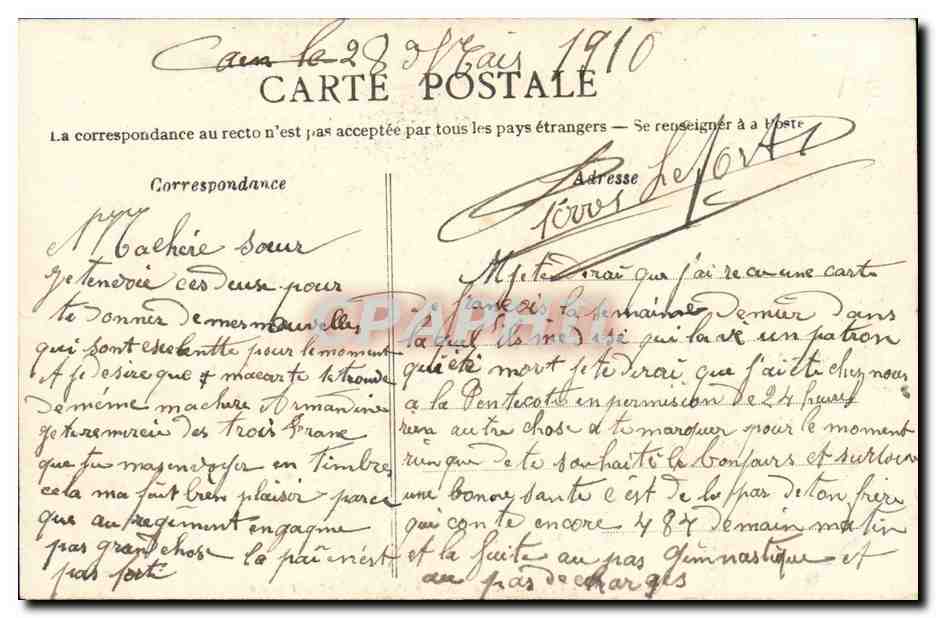 Caen le 28 Mais 1910
CARTE POSTALE
La correspondance au recto n'est pas acceptée par tous les pays étrangers — Se renseigner à a Poste
Correspondance
Ma chére sœur
je tenvoie ces deuse pour
te donner de mes nouvelles
qui sont exelentte pour le moment
je desire que ma carte te trouve
de méme ma chere Armandine
je te remercie des trois Franc
que tu mas envoyer en timbre
cela ma fait bien plaisir parce
que au regiment en gagne
pas grand chose la paü nest
pas forte
Adresse
Lefort
je tè dirai que j'ai recu une carte
de françois la semaine demür dans
la quel ils me disé qui lavè un patron
qui été mort je te dirai que j'ai été chez nous
a la Pentecote en permision de 24 heures
rien autre chose a te marquer pour le moment
rien que de te souhaité le bonjours et surtous
une bonne sante c'est de la par de ton frère
qui conte encore 484 demain matin
et la fuite au pas gimnastique et
au pas de charges
CPAPHIL